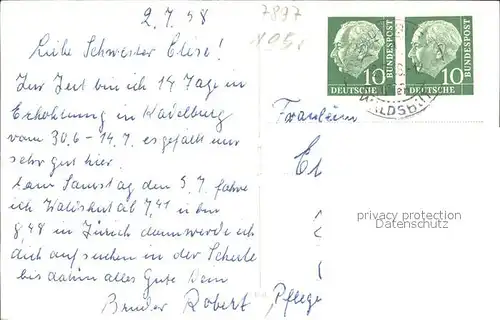 2.7.58
7897
Liebe Schwester Elise!
Zur Zeit bin ich 14 Tage in
Erhohlung in Kadelburg
vom 30.6 - 14.7. es gefällt mir
sehr gut hier.
Am Samstag den 5.7. fahre
ich Waldshut ab 7,41 über
8,48 in Zürich dann werde ich
dich aufsuchen in der Schule
bis dahin alles Gute Dein
Bruder Robert
10
DEUTSCHE
BUNDESPOST
10
DEUTSCHE
BUNDESPOST
Fräulein
El
Pflege
privacy protection
www.ansichtskartenversand.com